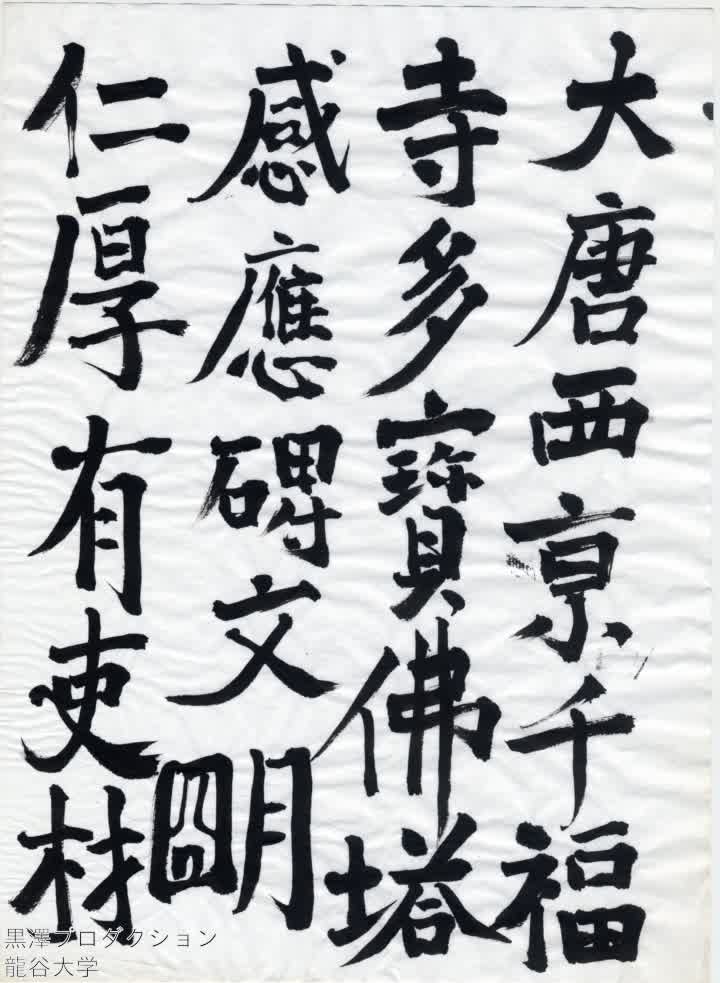 大唐西亰千福
寺多寶佛塔
感應碑文朙
仁厚有吏材
黒澤プロダクション
龍谷大学